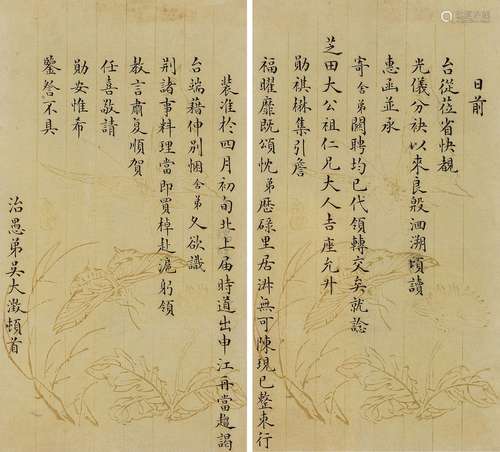 日前
台從莅省快覩
光儀分袂以來良殷洄溯頃讀
惠函並承
寄舍弟關聘均已代領轉交矣就諗
芝田大公祖仁兄大人吉座允升
勛祺楙集引詹
福曜靡既頌忱弟歷碌里居淋無可陳現已整束行
裝准於四月初旬北上屆時道出申江再當趨謁
台端藉伸別悃舍弟久欲識
荊諸事料理當即買棹赴滬躬領
教言肅复順賀
任喜敬請
勛安惟希
鑒詧不具
治愚弟吳大澂頓首